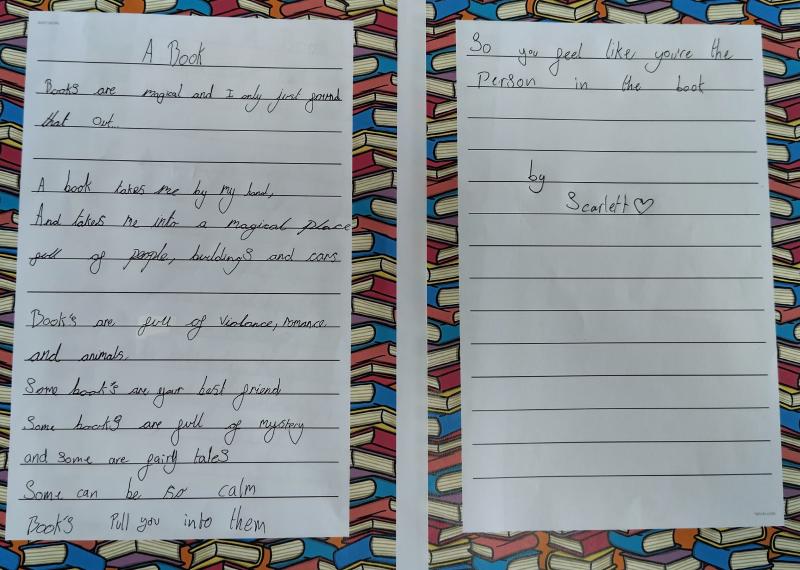 A Book
Books are magical and I only just found
that out...
A book takes me by my hand,
And takes me into a magical place
full of people, buildings and cars
Book's are full of violance, romance
and animals.
Some book's are your best friend
Some books are full of mystery
and some are fairy tales
Some can be so calm
Book's Pull you into them
So you feel like you're the
Person in the book
by
Scarlett♡